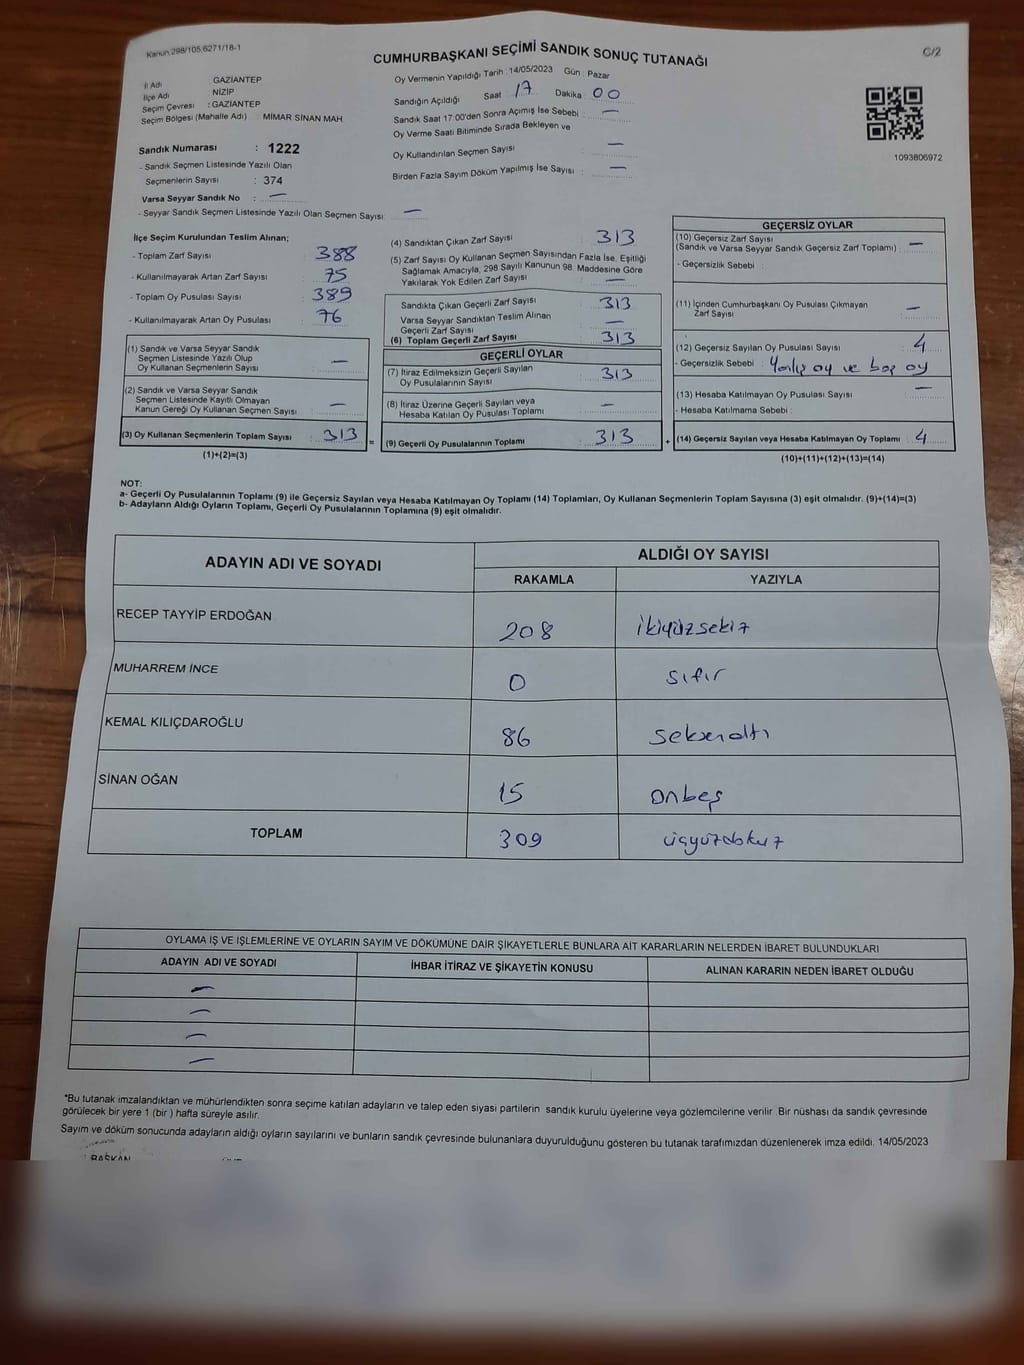 Kanun 298/105,6271/18-1
CUMHURBAŞKANI SEÇİMİ SANDIK SONUÇ TUTANAĞI
C/2
İl Adı GAZİANTEP
İlçe Adı NİZİP
Seçim Çevresi : GAZİANTEP
Seçim Bölgesi (Mahalle Adı) : MİMAR SİNAN MAH
Oy Vermenin Yapıldığı Tarih : 14/05/2023 Gün : Pazar
Sandığın Açıldığı Saat 17 Dakika 00
Sandık Saat 17:00'den Sonra Açımış İse Sebebi : —
Oy Verme Saati Bitiminde Sırada Bekleyen ve
Oy Kullandırılan Seçmen Sayısı : —
Birden Fazla Sayım Döküm Yapılmış İse Sayısı : —
1093806972
Sandık Numarası : 1222
- Sandık Seçmen Listesinde Yazılı Olan
Seçmenlerin Sayısı : 374
Varsa Seyyar Sandık No : —
- Seyyar Sandık Seçmen Listesinde Yazılı Olan Seçmen Sayısı: —
İlçe Seçim Kurulundan Teslim Alınan;
- Toplam Zarf Sayısı : 388
- Kullanılmayarak Artan Zarf Sayısı : 75
- Toplam Oy Pusulası Sayısı : 389
- Kullanılmayarak Artan Oy Pusulası : 76
(1) Sandık ve Varsa Seyyar Sandık
Seçmen Listesinde Yazılı Olup
Oy Kullanan Seçmenlerin Sayısı : —
(2) Sandık ve Varsa Seyyar Sandık
Seçmen Listesinde Kayıtlı Olmayan
Kanun Gereği Oy Kullanan Seçmen Sayısı : —
(3) Oy Kullanan Seçmenlerin Toplam Sayısı : 313 =
(1)+(2)=(3)
(4) Sandıktan Çıkan Zarf Sayısı : 313
(5) Zarf Sayısı Oy Kullanan Seçmen Sayısından Fazla İse, Eşitliği
Sağlamak Amacıyla, 298 Sayılı Kanunun 98. Maddesine Göre
Yakılarak Yok Edilen Zarf Sayısı : —
Sandıkta Çıkan Geçerli Zarf Sayısı : 313
Varsa Seyyar Sandıktan Teslim Alınan
Geçerli Zarf Sayısı : —
(6) Toplam Geçerli Zarf Sayısı : 313
GEÇERLİ OYLAR
(7) İtiraz Edilmeksizin Geçerli Sayılan
Oy Pusulalarının Sayısı : 313
(8) İtiraz Üzerine Geçerli Sayılan veya
Hesaba Katılan Oy Pusulası Toplamı : —
(9) Geçerli Oy Pusulalarının Toplamı : 313 +
GEÇERSİZ OYLAR
(10) Geçersiz Zarf Sayısı
(Sandık ve Varsa Seyyar Sandık Geçersiz Zarf Toplamı) : —
- Geçersizlik Sebebi :
(11) İçinden Cumhurbaşkanı Oy Pusulası Çıkmayan
Zarf Sayısı : —
(12) Geçersiz Sayılan Oy Pusulası Sayısı : 4
- Geçersizlik Sebebi : Yanlış oy ve boş oy
(13) Hesaba Katılmayan Oy Pusulası Sayısı : —
- Hesaba Katılmama Sebebi :
(14) Geçersiz Sayılan veya Hesaba Katılmayan Oy Toplamı : 4
(10)+(11)+(12)+(13)=(14)
NOT:
a- Geçerli Oy Pusulalarının Toplamı (9) ile Geçersiz Sayılan veya Hesaba Katılmayan Oy Toplamı (14) Toplamları, Oy Kullanan Seçmenlerin Toplam Sayısına (3) eşit olmalıdır. (9)+(14)=(3)
b- Adayların Aldığı Oyların Toplamı, Geçerli Oy Pusulalarının Toplamına (9) eşit olmalıdır.
ADAYIN ADI VE SOYADI ALDIĞI OY SAYISI
RAKAMLA YAZIYLA
RECEP TAYYİP ERDOĞAN 208 ikiyüzsekiz
MUHARREM İNCE 0 sıfır
KEMAL KILIÇDAROĞLU 86 seksenaltı
SİNAN OĞAN 15 onbeş
TOPLAM 309 üçyüzdokuz
OYLAMA İŞ VE İŞLEMLERİNE VE OYLARIN SAYIM VE DÖKÜMÜNE DAİR ŞİKAYETLERLE BUNLARA AİT KARARLARIN NELERDEN İBARET BULUNDUKLARI
ADAYIN ADI VE SOYADI İHBAR İTİRAZ VE ŞİKAYETİN KONUSU ALINAN KARARIN NEDEN İBARET OLDUĞU
—
—
—
—
*Bu tutanak imzalandıktan ve mühürlendikten sonra seçime katılan adayların ve talep eden siyasi partilerin sandık kurulu üyelerine veya gözlemcilerine verilir. Bir nüshası da sandık çevresinde
görülecek bir yere 1 (bir ) hafta süreyle asılır.
Sayım ve döküm sonucunda adayların aldığı oyların sayılarını ve bunların sandık çevresinde bulunanlara duyurulduğunu gösteren bu tutanak tarafımızdan düzenlenerek imza edildi. 14/05/2023
BAŞKAN